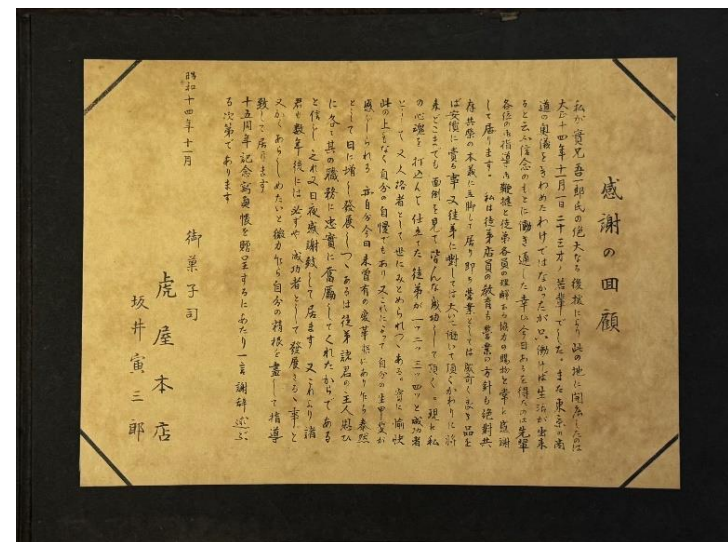 感謝の回顧
私が實兄吾一郎氏の絶大なる後援により此の地に開店したのは
大正十四年十一月一日二十三才ノ若輩でした。また東京の商
道の奥儀をきわめたわけではなかったが只、働けば生活が出来
ると云ふ信念のもとに働き通した幸ひ今日あるを得たのは先輩
各位の御指導御鞭撻と徒弟各員の理解ある協力の賜物と幸に感謝
して居ります。私は徒弟店員の教育も營業の方針も絶對共
存共榮の本義に立脚して居り即ち営業としては成可く良き品を
ば安價に賣る事又徒弟に對しては大いに働いて頂くかわりに将
来どこまでも面倒を見て皆んな成功して頂く。現に私
の心魂を打込んで仕立てた徒弟が一ツ二ツ三ツ四ツと成功者
として又人格者として世にみとめられつゝある。實に愉快
此の上もなく自分の自慢でもあり又これによって自分の生甲斐が
感じられる
として日に増し発展しつゝあるは徒弟諸君の主人思ひ
に各々其の職務に忠實に奮勵してくれたからである
と信じ之れ又日夜感謝致して居ます 又これより諸
君も數年後には必ずや成功者として發展する事と
又かくあらしめたいと微力乍ら自分の精根を盡して指導
致して居ります
十五周年記念寫眞帳を贈呈するにあたり一言謝辞述ぶ
る次第であります
昭和十四年十一月
御菓子司
虎屋本店
坂井寅三郎